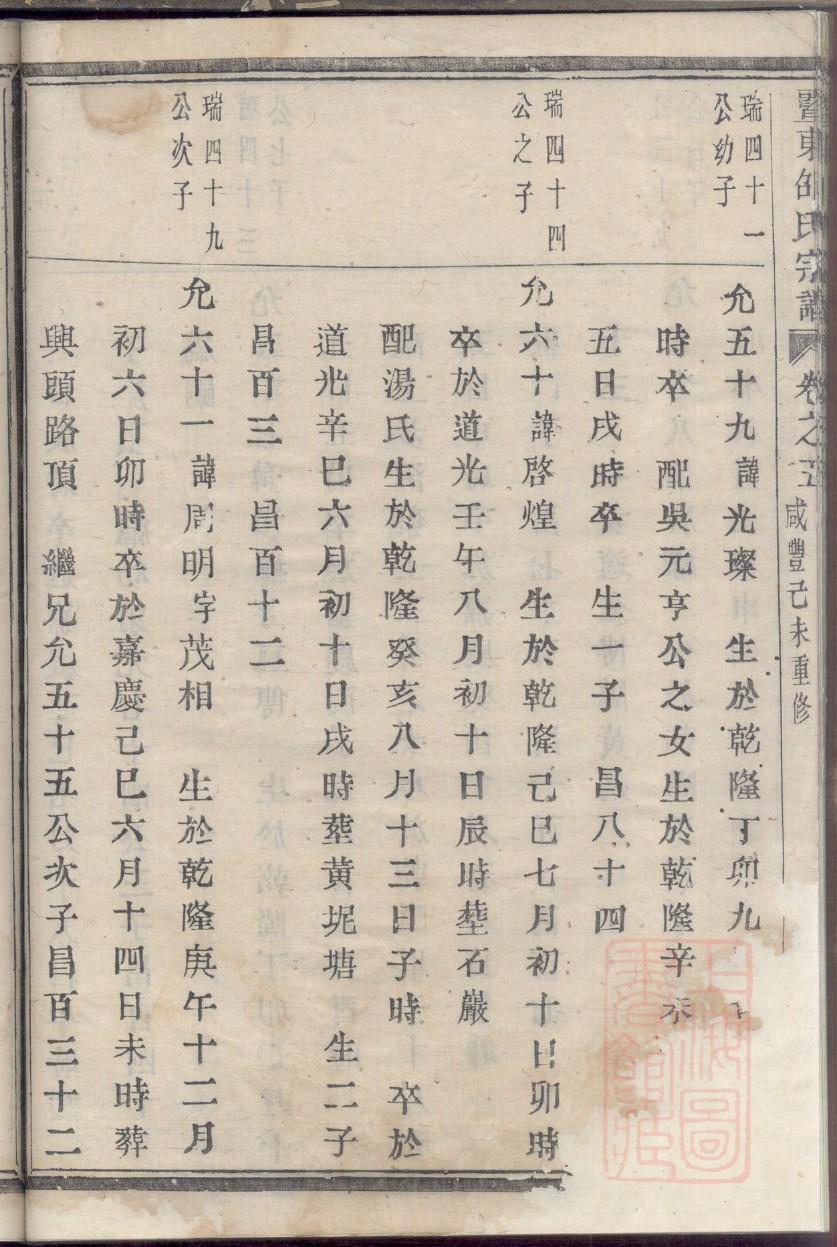 暨東邵氏宗譜 卷之五 咸豐己未重修
瑞四十一
公幼子
允五十九諱光燦 生於乾隆丁卯九
時卒 配吳元亨公之女生於乾隆辛未
五日戌時卒 生一子 昌八十四
瑞四十四
公之子
允六十諱啓煌 生於乾隆己巳七月初十日卯時
卒於道光壬午八月初十日辰時塟石巖
配湯氏生於乾隆癸亥八月十三日子時 卒於
道光辛巳六月初十日戌時塟黃坭塘 生二子
昌百三 昌百十二
瑞四十九
公次子
允六十一諱周明字茂相 生於乾隆庚午十二月
初六日卯時卒於嘉慶己巳六月十四日未時葬
興頭路頂 繼兄允五十五公次子昌百三十二
上海圖
書館藏